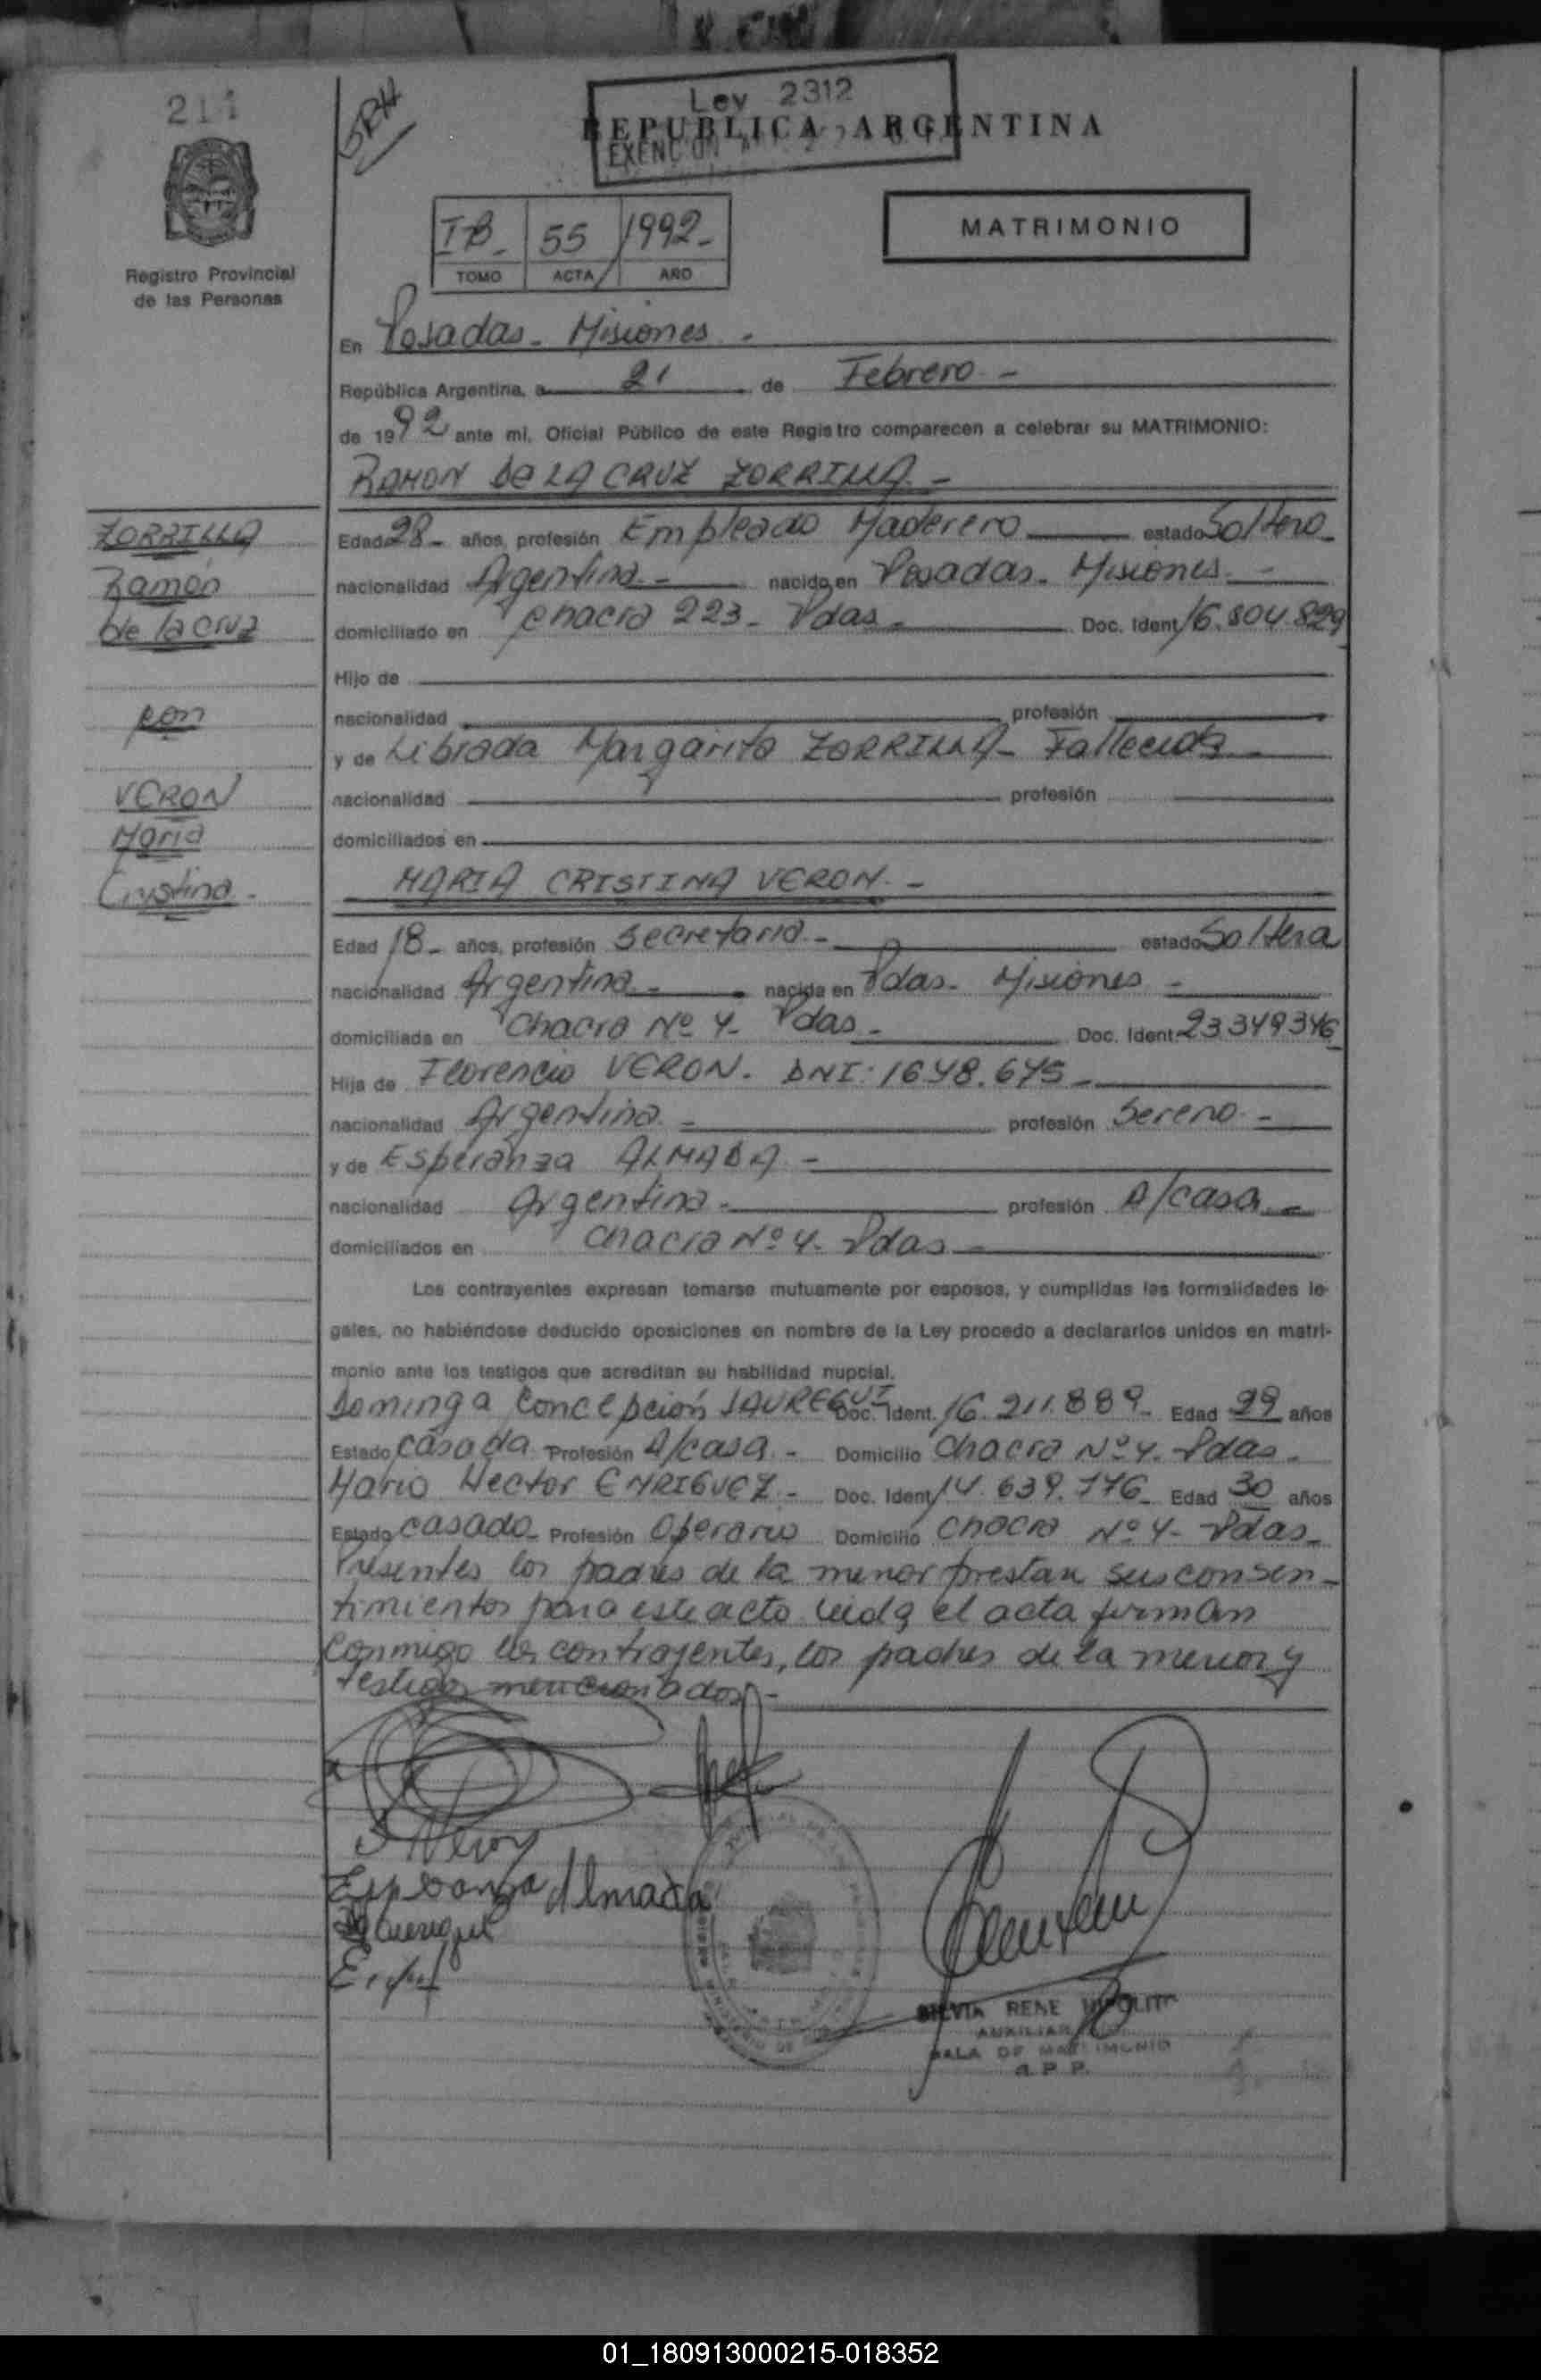 211
SRH
Ley 2312
REPUBLICA ARGENTINA
EXENCION
I-B- 55 1992-
TOMO ACTA AÑO
MATRIMONIO
Registro Provincial
de las Personas
En Posadas - Misiones -
República Argentina, a 21 de Febrero -
de 1992 ante mi, Oficial Público de este Registro comparecen a celebrar su MATRIMONIO:
RAMON DE LA CRUZ ZORRILLA -
ZORRILLA
Ramón
De la Cruz
con
VERON
Maria
Cristina -
Edad 28- años, profesión Empleado Maderero estado Soltero -
nacionalidad Argentina - nacido en Posadas - Misiones -
domiciliado en Chacra 223 - Pdas - Doc. Ident. 16.804.829
Hijo de
nacionalidad profesión
y de Librada Margarita ZORRILLA - Fallecida
nacionalidad profesión
domiciliados en
MARIA CRISTINA VERON -
Edad 18- años, profesión Secretaria - estado Soltera
nacionalidad Argentina - nacida en Pdas - Misiones -
domiciliada en Chacra Nº 4 - Pdas - Doc. Ident. 23.349.346
Hija de Florencio VERON - DNI: 1648.675 -
nacionalidad Argentina - profesión Sereno -
y de Esperanza ALMADA -
nacionalidad Argentina - profesión A/casa -
domiciliados en Chacra Nº 4 - Pdas -
Los contrayentes expresan tomarse mutuamente por esposos, y cumplidas las formalidades le-
gales, no habiéndose deducido oposiciones en nombre de la Ley procedo a declararlos unidos en matri-
monio ante los testigos que acreditan su habilidad nupcial.
Dominga Concepción JAUREGUI Doc. Ident. 16.211.889 - Edad 29 años
Estado casada Profesión A/casa - Domicilio Chacra Nº 4 - Pdas -
Mario Hector ENRIGUEZ - Doc. Ident. 14.639.776 - Edad 30 años
Estado casado - Profesión Operario Domicilio Chacra Nº 4 - Pdas -
Presentes los padres de la menor prestan sus consen-
timientos para este acto leida el acta firman
conmigo los contrayentes, los padres de la menor y
testigos mencionados -
Esperanza Almada
SILVIA RENE HIPOLITO
AUXILIAR
SALA DE MATRIMONIO
R. P. P.
01_180913000215-018352